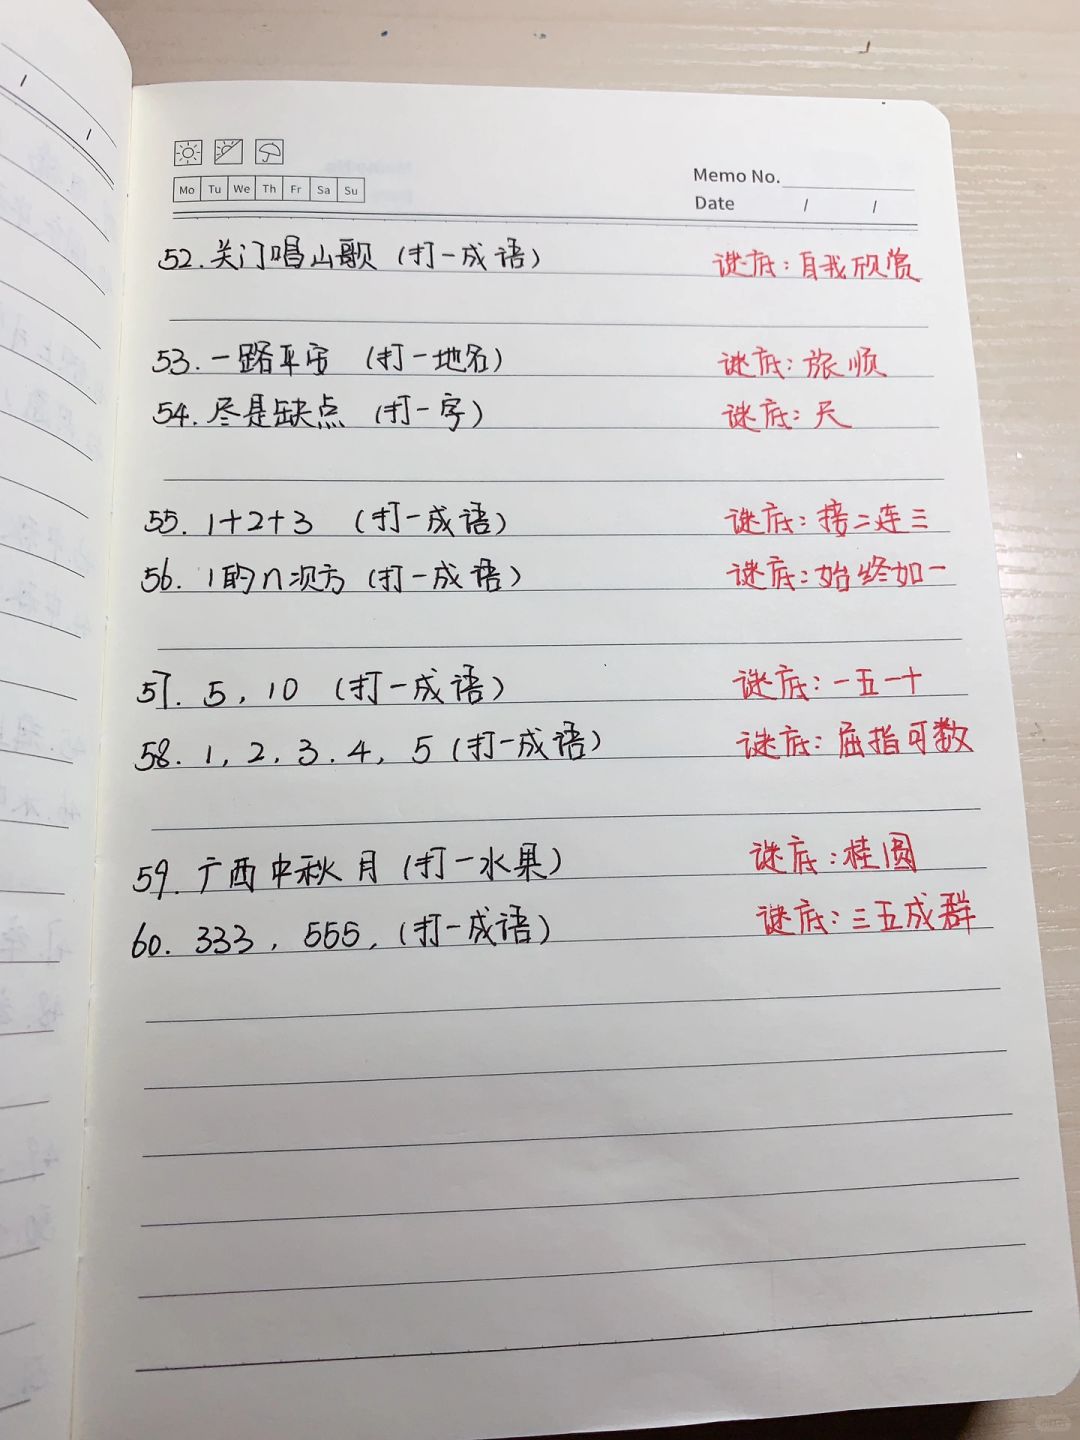 Mo Tu We Th Fr Sa Su
Memo No.
Date / /
52.关门唱山歌(打一成语) 谜底:自我欣赏
53.一路平安(打一地名) 谜底:旅顺
54.尽是缺点(打一字) 谜底:尺
55.1+2+3(打一成语) 谜底:接二连三
56.1的n次方(打一成语) 谜底:始终如一
57.5,10(打一成语) 谜底:一五一十
58.1,2,3.4,5(打一成语) 谜底:屈指可数
59.广西中秋月(打一水果) 谜底:桂圆
60.333,555,(打一成语) 谜底:三五成群